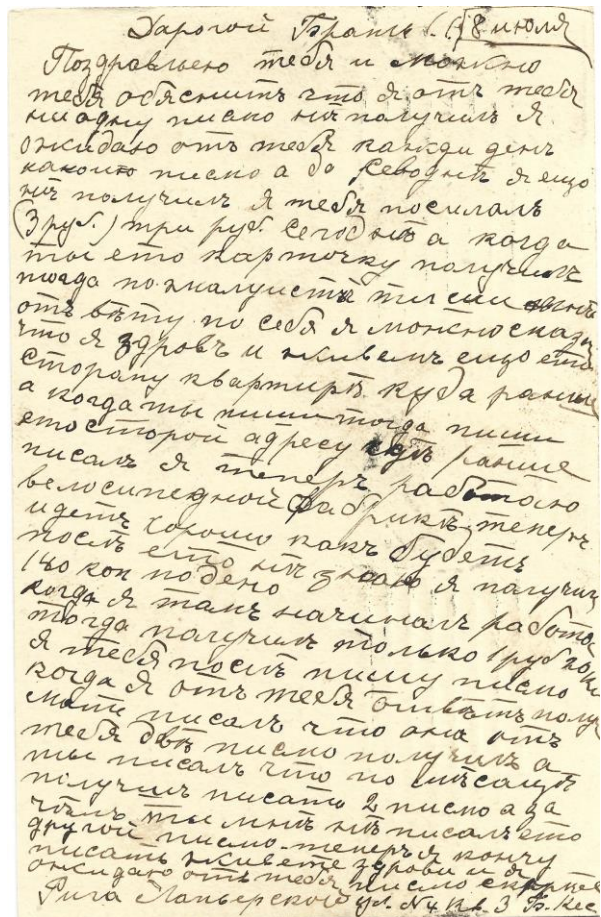 Дарогой Братъ. 18 июля
Поздравьею тебя и можно
тебя обяснитъ что я отъ тебя
ни одну писмо нѣ получилъ я
ожидаю отъ тебя кажди денъ
какою писмо а до севоднѣ я ещо
нѣ получилъ я тебя посилалъ
(3 руб.) три руб. Сегоднѣ а когда
ты ето карточку получилъ
тогда пожалуиста ти
отъ вѣту по себя я можно сказ
что я здровъ и живемъ ещо ето
сторану квартирѣ куда раньш
а когда ты пиши тогда пиши
ето сторой адресу гдѣ ранше
писалъ я теперъ работаю
велосипедной Фабрикѣ, теперъ
идетъ хорошо какъ будетъ
послѣ ето нѣ знаю я получил
180 коп по дено
когда я тамъ начиналъ работа
тогда получилъ только 1 руб 20 ко
я тебя послѣ пишу писмо
когда я отъ тебя отвѣтъ полу
мати писалъ что она отъ
тебя двѣ писмо получилъ а
ты писалъ что по мѣсацѣ
получишъ писато 2 писмо а за
чѣмъ ты мнѣ нѣ писалъ ето
другой писмо. теперъ я кончу
писатъ живете здрови и я
ожидаю отъ тебя писмо скарѣе
Рига Лаперской ул. N4 кв. 3 Б. Кес